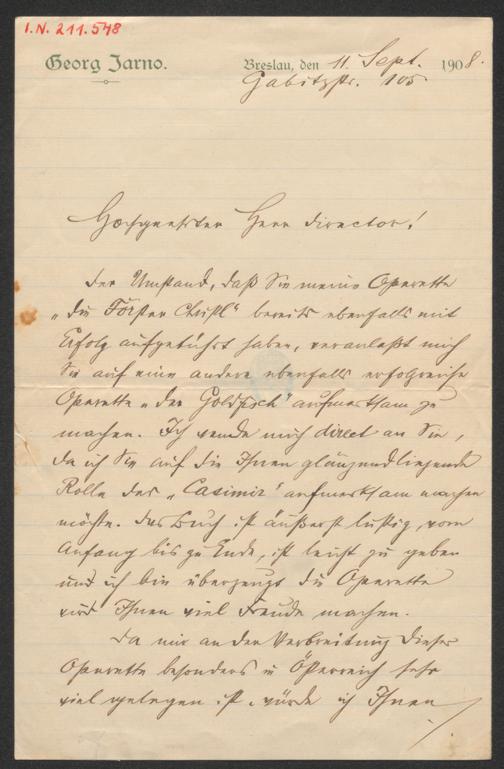 I.N. 211.548
Georg Jarno.
Breslau, den 11. Sept. 1908.
Gabitzstr. 105
Hochgeehrter Herr Director!
Der Umstand, daß Sie meine Operette
„die Förster Christl" bereits ebenfalls mit
Erfolg aufgeführt haben, veranlaßt mich
Sie auf eine andere ebenfalls erfolgreiche
Operette „der Goldfisch" aufmerksam zu
machen. Ich wende mich direct an Sie,
da ich Sie auf die Ihnen glänzend liegende
Rolle des „Casimir" aufmerksam machen
möchte. Das Buch ist äußerst lustig, vom
Anfang bis zu Ende, ist leicht zu geben
und ich bin überzeugt die Operette
wird Ihnen viel Freude machen.
Da mir an der Verbreitung dieser
Operette besonders in Österreich sehr
viel gelegen ist, würde ich Ihnen